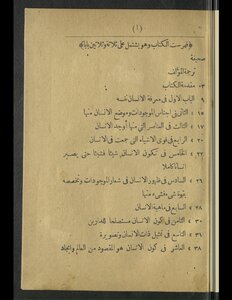 (١)
﴿فهرست الكتاب وهو يشتمل على ثلاثة وثلاثين بابا﴾
صحيفة
ترجمة المؤلف
٠٣ مقدمة الكتاب
٩ الباب الاول في معرفة الانسان نفسه
١٥ الثاني في اجناس الموجودات وموضع الانسان منها
١٧ الثالث في العناصر التي منها أوجد الانسان
٢٠ الرابع في قوى الاشياء التي جمعت في الانسان
٢٢ الخامس في تكون الانسان شيئا فشيئا حتى يصير
انسانا كاملا
٢٦ السادس في ظهور الانسان في شعار الموجودات وتخصصه
بقوة شيء فشيء منها
السابع في ماهية الانسان
الثامن في كون الانسان مستصلحا للدارين
التاسع في تمثيل ذات الانسان وتصويرة
٣٨ العاشر في كون الانسان هو المقصود من العالم وايجاد